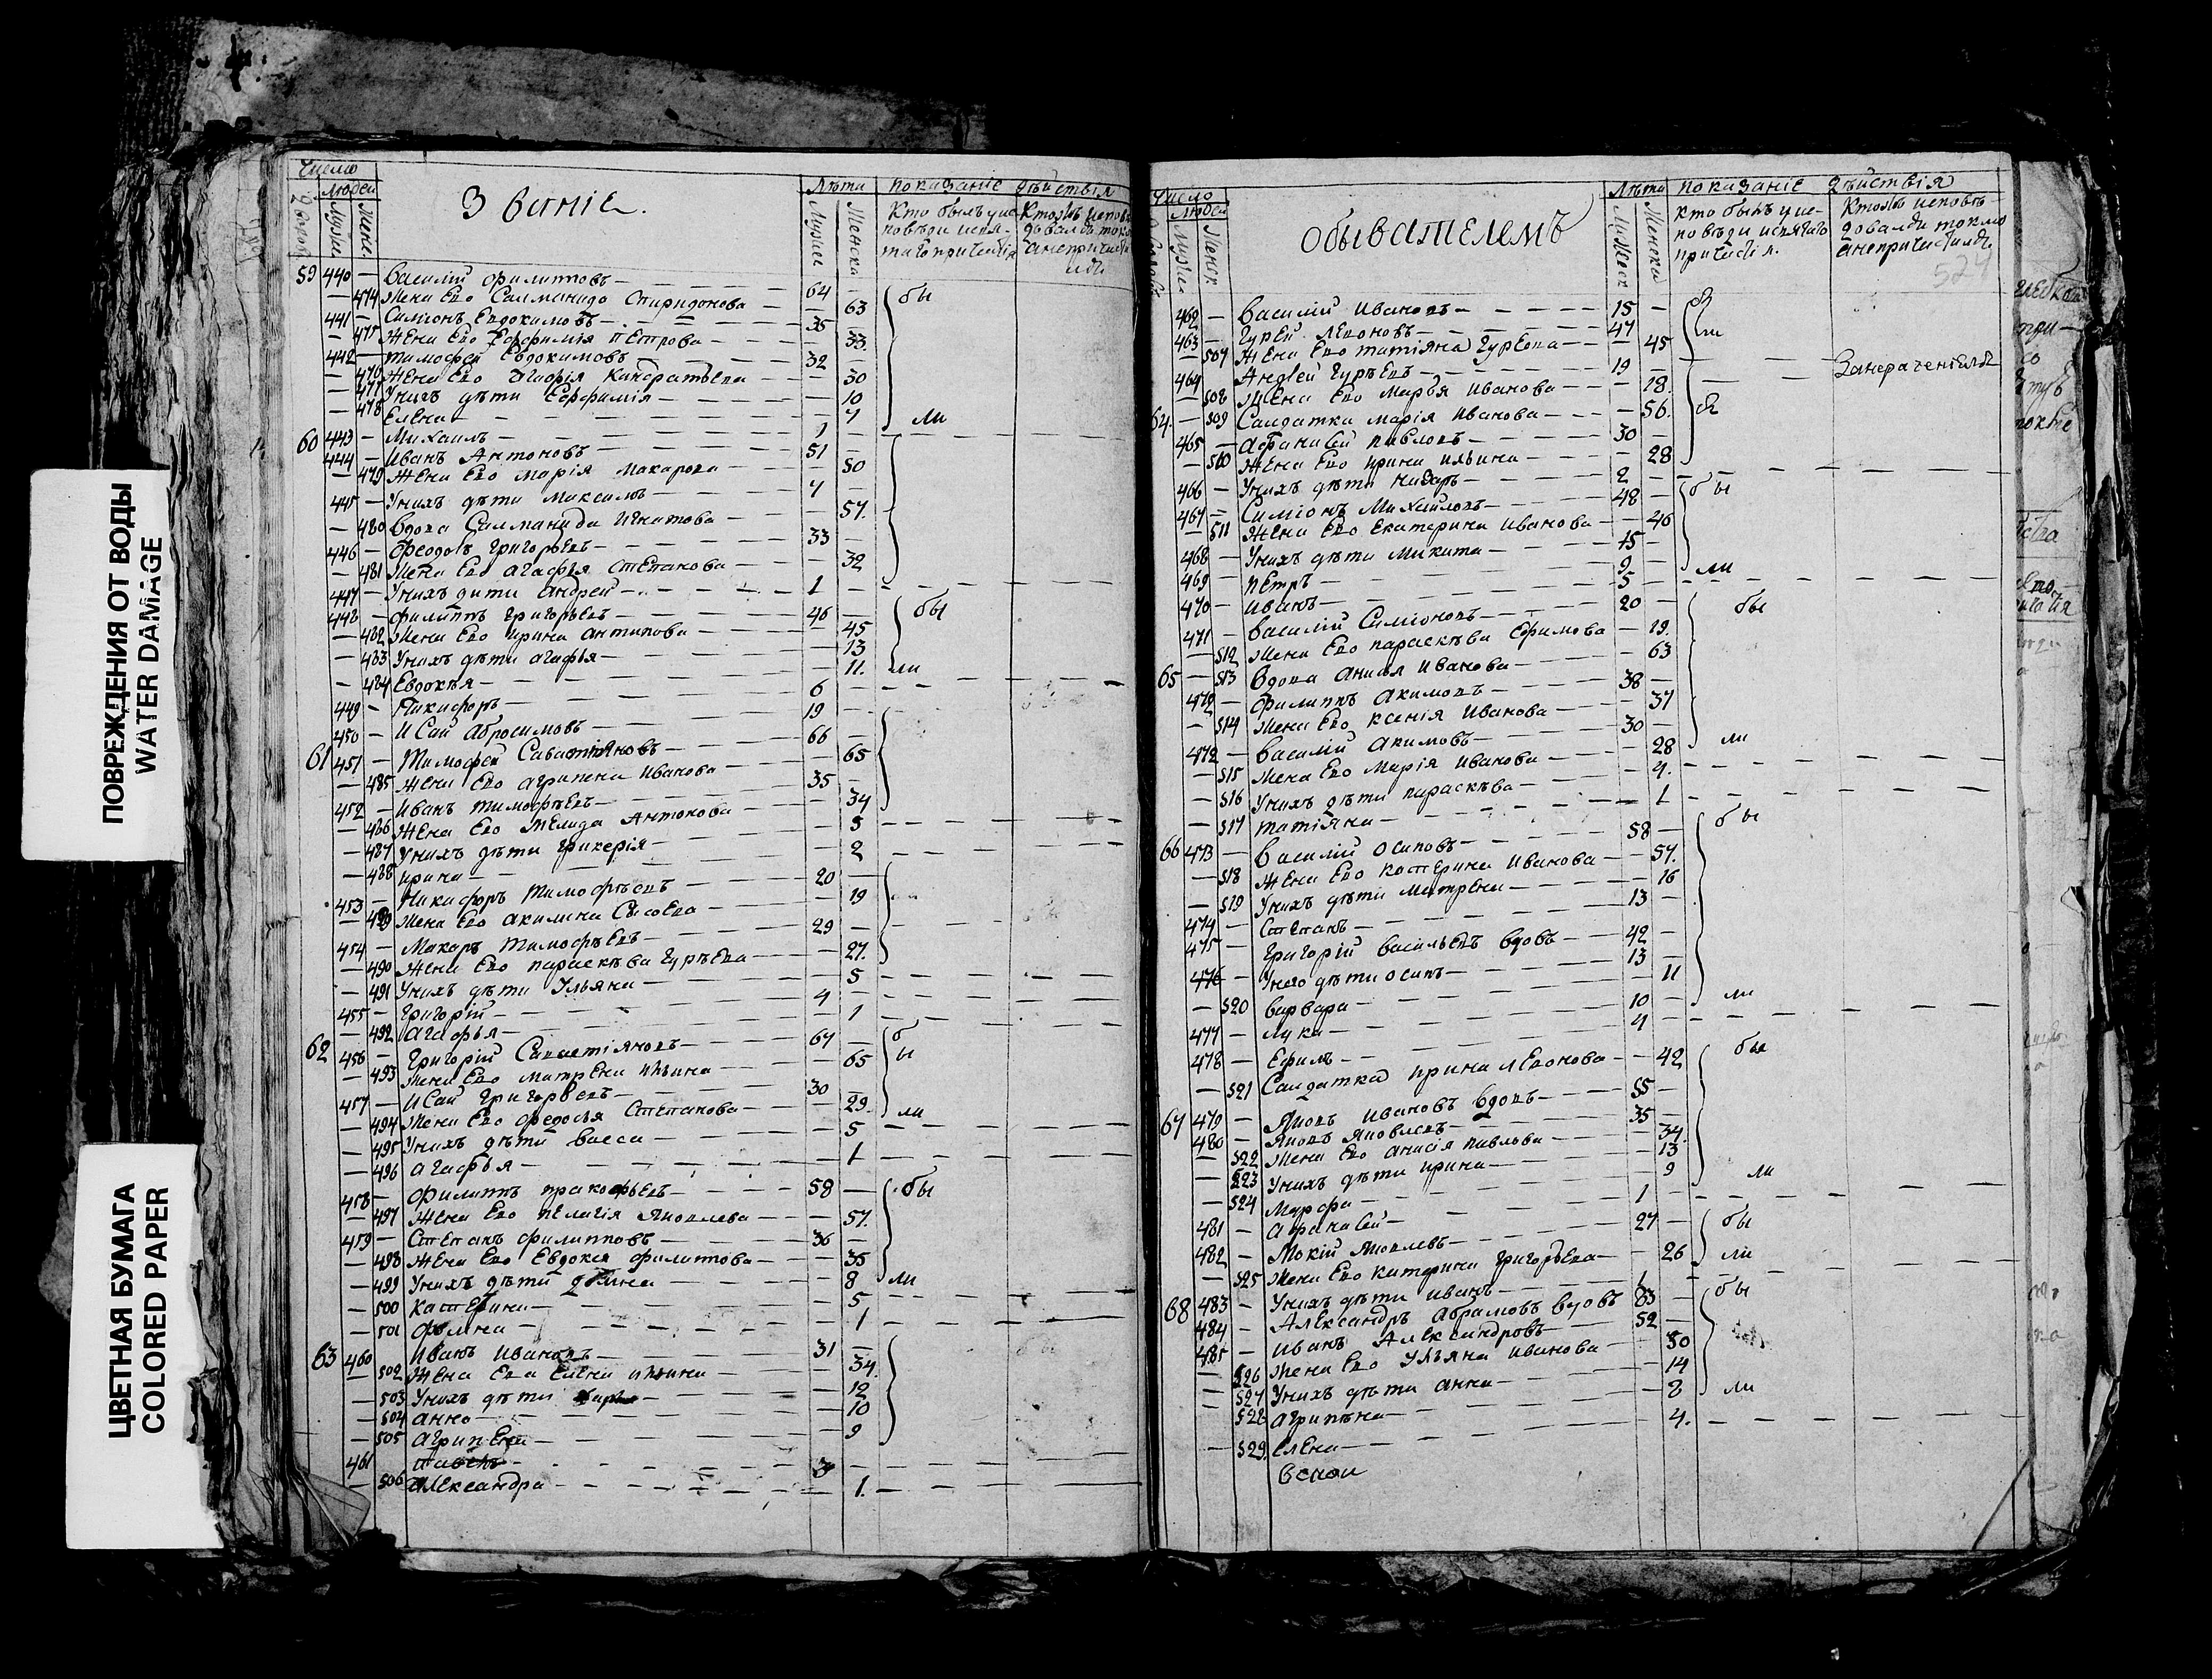 ПОВРЕЖДЕНИЯ ОТ ВОДЫ
WATER DAMAGE
ЦВЕТНАЯ БУМАГА
COLORED PAPER
Число
людей
Званіе.
Лѣта
показаніе дѣйствія
59 440 — Василий Филипповъ — 64 — бы
— 474 Жена Ево Саламанида Спиридонова — 63
441 — Симионъ Евдокимовъ — 35
— 475 Жена Ево Еффимія Петрова — 33.
442 — Тимофей Евдокимовъ — 32
— 476 Жена Ево Агафія Кандратьева — 30
— 477 Унихъ дѣти Еффимія — 10
— 478 Елена — 7 ли
443 — Михаилъ — 1
60 444 — Иванъ Антоновъ — 51
— 479 Жена Ево Марія Макарова — 50
445 — Унихъ дѣти Максимъ — 7
— 480 Вдова Саламанида Игнатова — 57.
446 — Феодоръ Григорьевъ — 33
— 481 Жена Ево Агафья Степанова — 32
447 — Унихъ дити Андрей — 1
448 — Филиппъ Григорьевъ — 46 — бы
— 482 Жена Ево Ирина Антипова — 45
— 483 Унихъ дѣти Агафья — 13
— 484 Евдокея — 11. ли
449 — Никифоръ — 6
450 — Исай Абросимовъ — 19
61 451 — Тимофей Савастьяновъ — 66
— 485 Жена Ево Агрипена Иванова — 65
452 — Иванъ Тимофѣевъ — 35
— 486 Жена Ево Антонова — 34
— 487 Унихъ дѣти Гликерія — 5
— 488 Ирина — 2
453 — Никифоръ Тимофѣевъ — 20
— 489 Жена Ево Акилина Сысоева — 19
454 — Макаръ Тимофѣевъ — 29
— 490 Жена Ево Параскѣва Гурѣева — 27.
— 491 Унихъ дѣти Ульяна — 5
455 — Григорій — 4
— 492 Агафья — 1
62 456 — Григорій Савастіяновъ — 67 — бы
— 493 Жена Ево Матрена Ильина — 65
457 — Исай Григорьевъ — 30
— 494 Жена Ево Федосья Степанова — 29. ли
— 495 Унихъ дѣти Васса — 5
— 496 Агафья — 1
458 — Филиппъ Пракофьевъ — 58 — бы
— 497 Жена Ево Пелагія Яковлева — 57.
459 — Степанъ Филипповъ — 36
— 498 Жена Ево Евдокея Филиппова — 35
— 499 Унихъ дѣти — 8 ли
— 500 Катерина — 5
— 501 — 1
63 460 Иванъ Ивановъ — 31
— 502 Жена Ево Елена Ильина — 34.
— 503 Унихъ дѣти — 12
— 504 Анна — 10
— 505 Агрипена — 9
461 Павелъ — 3
— 506 Александра — 1.
Число
людей
Обывателемъ
Лѣта
показаніе дѣйствія
524
462 — Василий Ивановъ — 15
463 — Гурей Левоновъ — 47 — ли
— 507 Жена Ево Татіяна Гурѣева — 45
464 — Андрей Гурѣевъ — 19
— 508 Жена Ево Марья Иванова — 18.
64. — 509 Салдатка Марія Иванова — 56.
465 — Афанасей Павловъ — 30
— 510 Жена Ево Ирина Ильина — 28
466 — Унихъ дѣти — 2
467 — Симіонъ Михайловъ — 48 — бы
— 511 Жена Ево Екатерина Иванова — 46
468 — Унихъ дѣти Микита — 15
469 — Петръ — 9 ли
470 — Иванъ — 5
471 — Василий Симіоновъ — 20 — бы
— 512 Жена Ево Параскѣва Ефимова — 19.
65 — 513 Вдова Анисья Иванова — 63
472 — Филиппъ Акимовъ — 38
— 514 Жена Ево Ксенія Иванова — 37
472 — Василий Акимовъ — 30
— 515 Жена Ево Марія Иванова — 28 ли
— 516 Унихъ дѣти Параскѣва — 4.
— 517 Татіяна — 1
66 473 — Василий Осиповъ — 58 — бы
— 518 Жена Ево Катерина Иванова — 57.
— 519 Унихъ дѣти Матрена — 16
474 — Степанъ — 13
475 — Григорій Васильевъ Вдовъ — 42
476 — Унего дѣти Осипъ — 13
— 520 Варвара — 11
477 — Лука — 10 ли
478 — Ефимъ — 4
— 521 Салдатка Ирина Левонова — 42 бы
67 479 — Яковъ Ивановъ Вдовъ — 55
480 — Яковъ Яковлевъ — 35
— 522 Жена Ево Анисія Павлова — 34.
— 523 Унихъ дѣти Ирина — 13
— 524 Марфа — 9 ли
481 — Афанасей — 1
482 — Мокій Яковлевъ — 27 — бы
— 525 Жена Ево Катерина Григорьева — 26 ли
483 — Унихъ дѣти Иванъ — 1
68 484 — Александръ Абрамовъ Вдовъ 83 бы
485 — Иванъ Александровъ — 52
— 526 Жена Ево Ульяна Иванова — 50
— 527 Унихъ дѣти Анна — 14
— 528 Агрипѣна — 8 ли
— 529 Елена — 4.